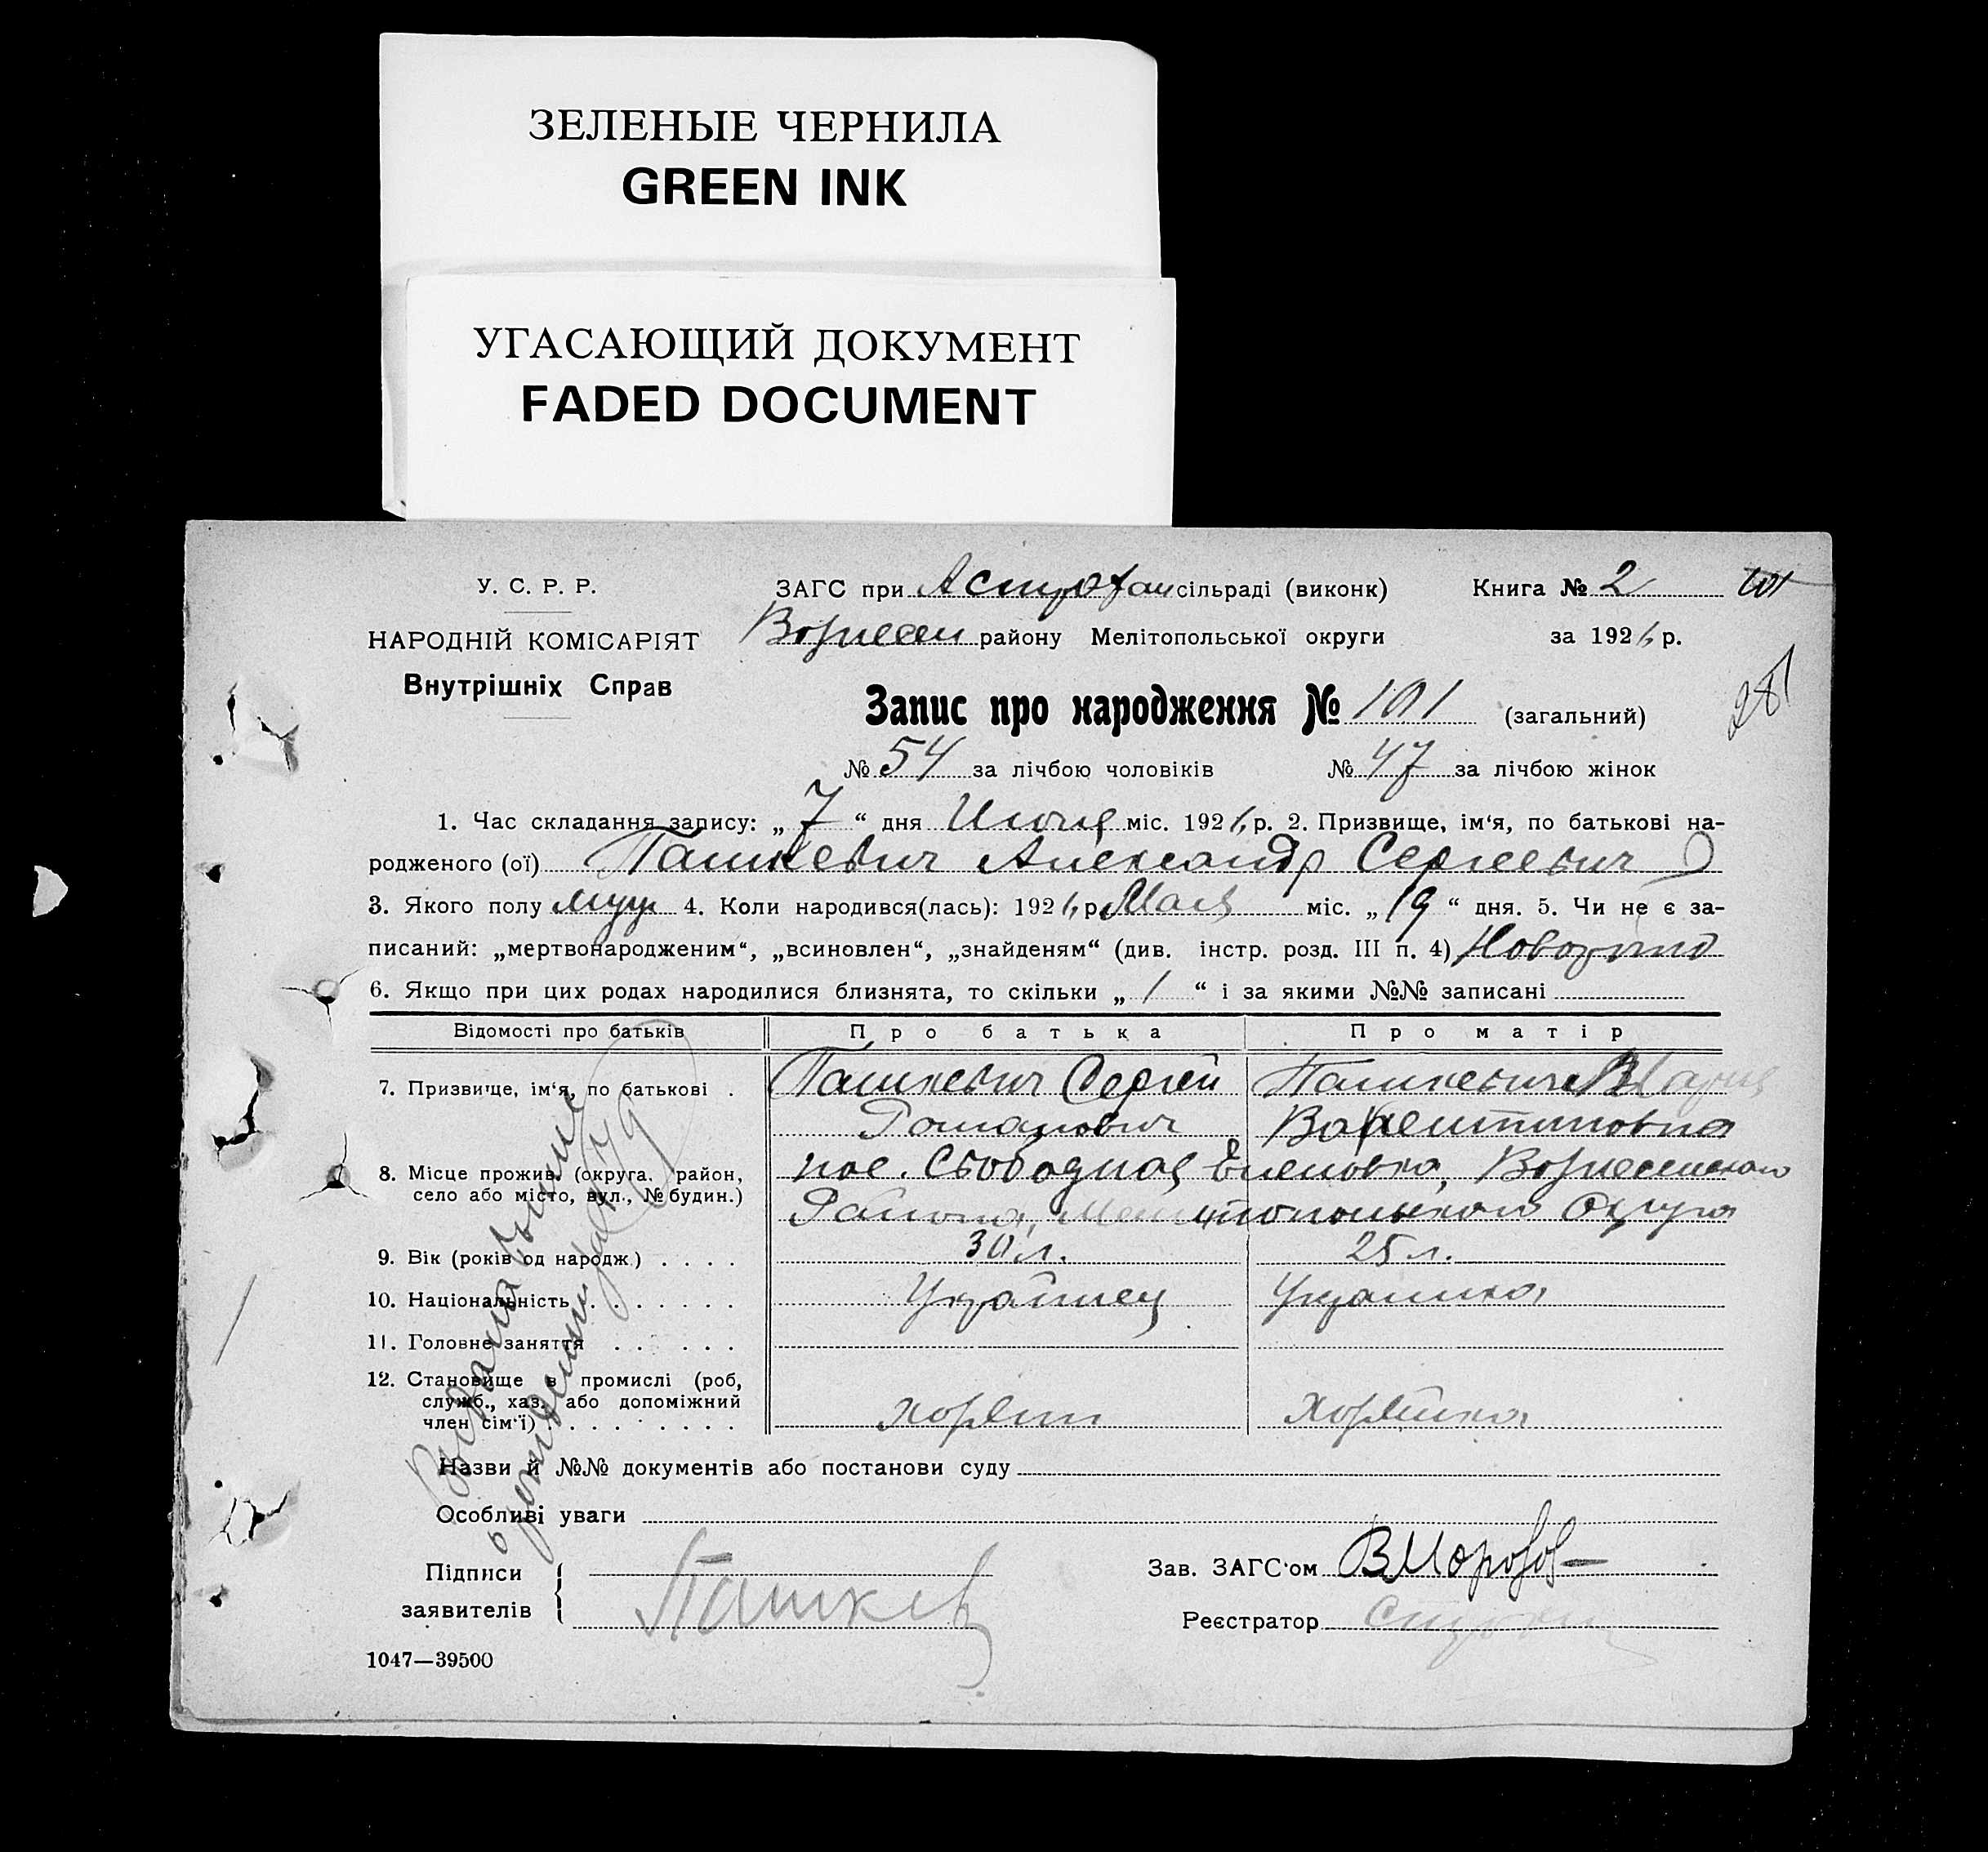 ЗЕЛЕНЫЕ ЧЕРНИЛА
GREEN INK
УГАСАЮЩИЙ ДОКУМЕНТ
FADED DOCUMENT
У. С. Р. Р.
НАРОДНІЙ КОМІСАРІЯТ
Внутрішніх Справ
ЗАГС при Астрахан сільраді (виконк)
Вознесен району Мелітопольської округи
Книга № 2
101
за 1926 р.
281
Запис про народження № 101 (загальний)
№ 54 за лічбою чоловіків № 47 за лічбою жінок
1. Час складання запису: „ 7 “ дня Июня міс. 1926 р. 2. Призвище, ім‘я, по батькові на-
родженого (ої) Пашкевич Александр Сергеевич
3. Якого полу муж 4. Коли народився(лась): 1926 р. Мая міс. „ 19 “ дня. 5. Чи не є за-
писаний: „мертвонародженим“, „всиновлен“, „знайденям“ (див. інстр. розд. III п. 4)
6. Якщо при цих родах народилися близнята, то скільки „ 1 “ і за якими №№ записані
Відомості про батьків Про батька Про матір
7. Призвище, ім‘я, по батькові . Пашкевич Сергей Пашкевич Мария
Романович Валентиновна
8. Місце прожив. (округа, район, пос. Свободная Еленовка, Вознесенского
село або місто, вул., № будин.) Района, Мелитопольского Округа
9. Вік (років од народж.) . . . . 30 л. 25 л.
10. Національність . . . . . . . Украинец Украинка
11. Головне заняття . . . . . .
12. Становище в промислі (роб,
служб., хаз. або допоміжний
член сім‘ї) . . . . . . . . хозяин хозяйка
Назви й №№ документів або постанови суду
Особливі уваги
Підписи
заявителів
Пашкев
Зав. ЗАГС‘ом ВМорозов
Реєстратор
1047—39500
Выдана выпись
о рождении